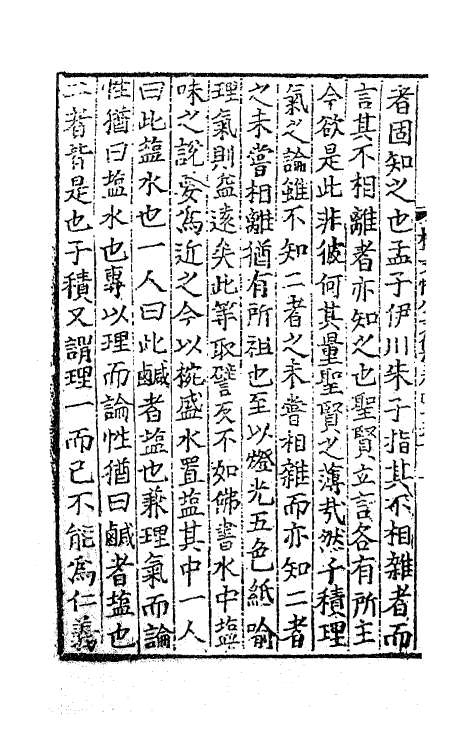 者固知之也孟子伊川朱子指其不相雜者而
言其不相離者亦知之也聖賢立言各有所主
今欲是此非彼何其量聖賢之薄哉然子積理
氣之論雖不知二者之未嘗相雜而亦知二者
之未嘗相離猶有所祖也至以燈光五色紙喻
理氣則益遠矣此等取譬反不如佛書水中塩
味之說妄為近之今以椀盛水置塩其中一人
曰此塩水也一人曰此鹹者塩也兼理氣而論
性猶曰塩水也專以理而論性猶曰鹹者塩也
二者皆是也子積又謂理一而已不能為仁義